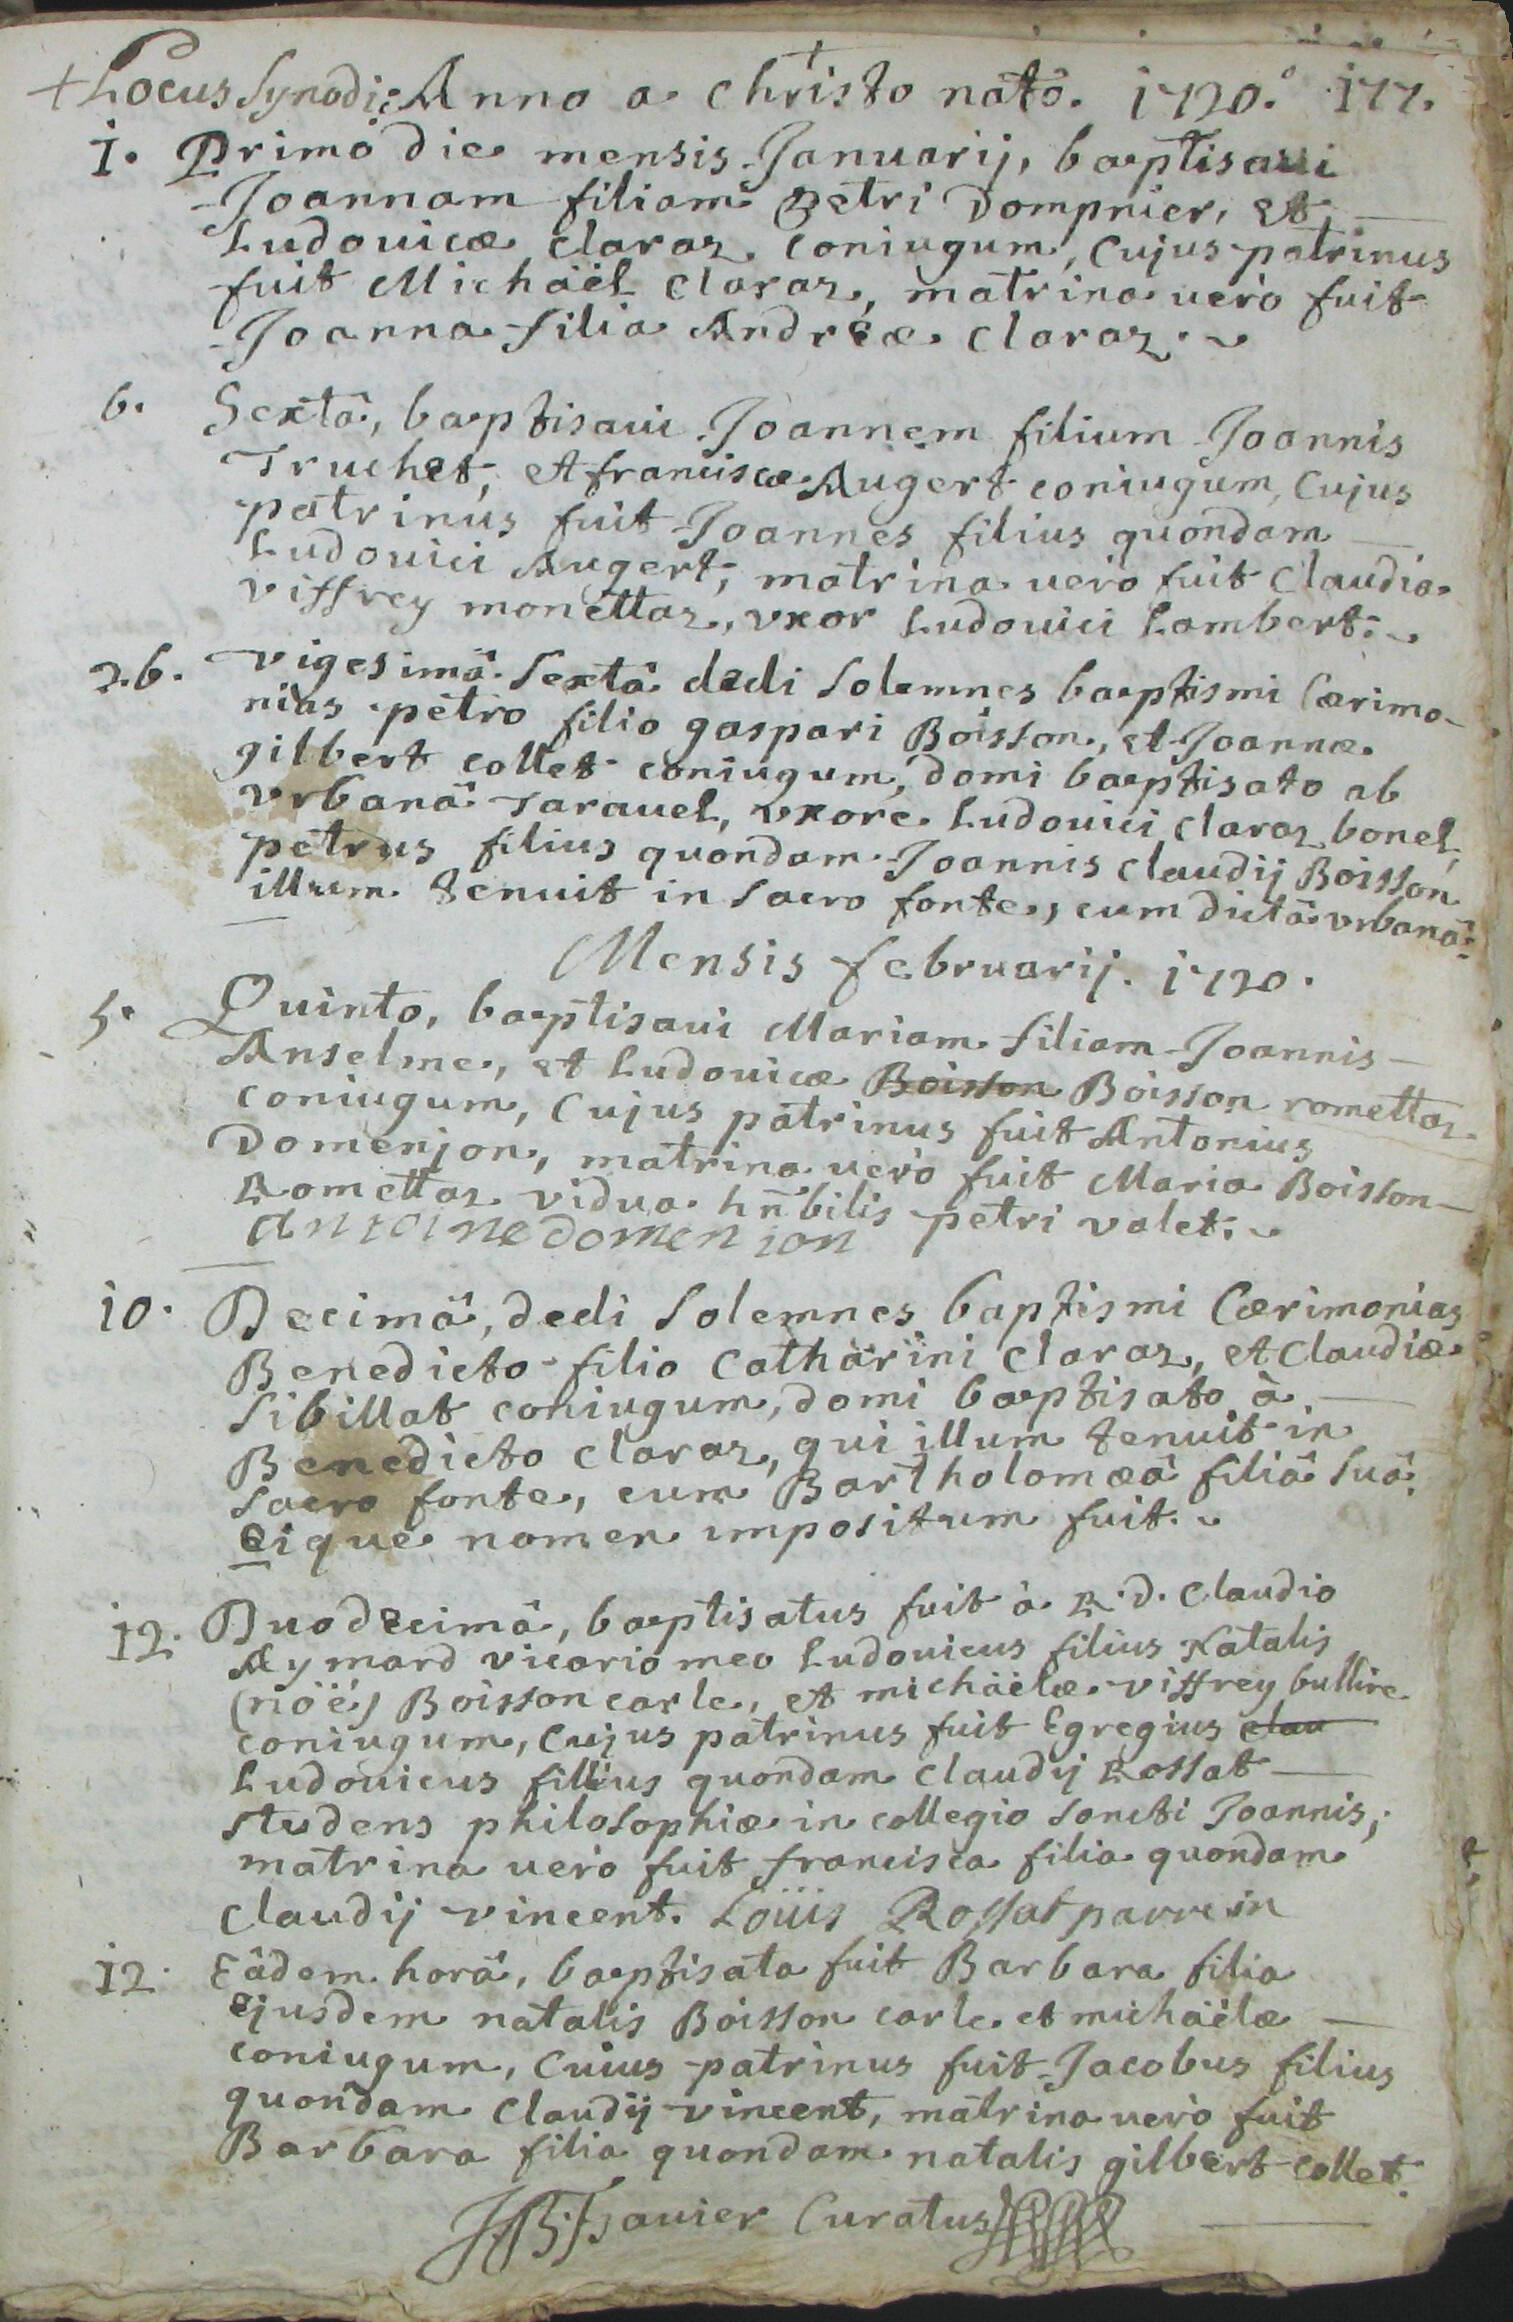 + Locus Synodi; Anno a Christo nato. 1720.° 177.
1. Primâ die mensis Januarij, baptisaui
Joannam filiam Petri Dompnier, et
Ludouicæ claraz coniugum, Cujus patrinus
fuit Michäel claraz, matrina uerò fuit
Joanna filia Andréæ claraz.
6. Sextâ, baptisaui Joannem filium Joannis
Truchet, et franciscæ Augert coniugum, Cujus
patrinus fuit Joannes filius quondam
Ludouici Augert, matrina uerò fuit Claudia
viffrey monettaz, vxor Ludouici Lambert.
26. vigesimâ Sextâ dedi Solemnes baptismi Cærimo-
nias petro filio gaspari Boisson, et Joannæ
gilbert collet coniugum, domi baptisato ab
vrbanâ Tarauel, vxore Ludouici claraz bonel,
petrus filius quondam Joannis claudij Boisson
illum tenuit in Sacro fonte, cum dictâ vrbanâ.
Mensis februarij. 1720.
5. Quinto, baptisaui Mariam filiam Joannis
Anselme, et Ludouicæ Boisson Boisson romettaz
coniugum, Cujus patrinus fuit Antonius
Domenjon, matrina uerò fuit Maria Boisson
Romettaz vidua hñbilis petri valet.
antoine domenion
10. Decimâ, dedi Solemnes baptismi Cærimonias
Benedicto filio Catharini claraz, et Claudiæ
Sibillat coniugum, domi baptisato à
Benedicto claraz, qui illum tenuit in
Sacro fonte, cum Bartholomæâ filiâ Suâ,
Eique nomen impositum fuit.
12. Duodecimâ, baptisatus fuit à R.d. Claudio
Aymard vicario meo Ludouicus filius Natalis
(nöé) Boisson carle, et michäelæ viffrey bullire
coniugum, Cujus patrinus fuit Egregius clau
Ludouicus filius quondam Claudij Rossat
studens philosophiæ in collegio Sancti Joannis,
matrina uerò fuit francisca filia quondam
Claudij vincent. Loüis Rossat parrein
12. Eâdem horâ, baptisata fuit Barbara filia
ejusdem natalis Boisson carle et michäelæ
coniugum, Cuius patrinus fuit Jacobus filius
quondam Claudij vincent, matrina uerò fuit
Barbara filia quondam natalis gilbert collet.
Curatus